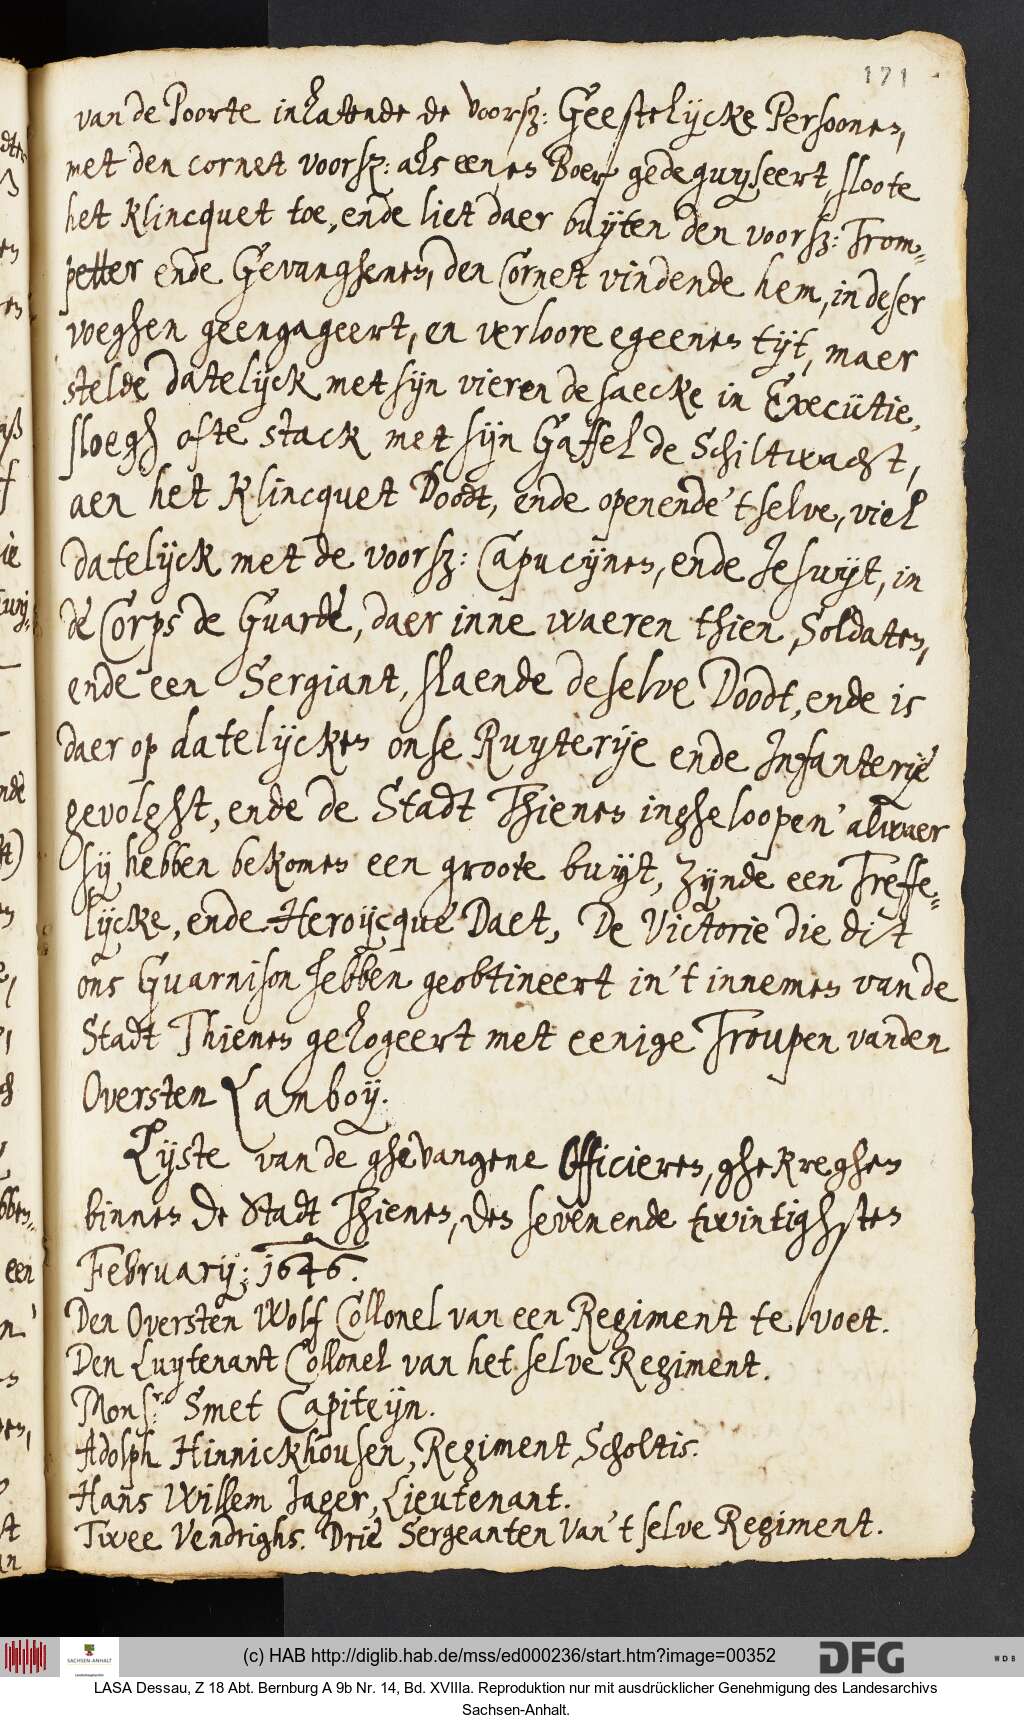 171
van de Poorte inlatende de voorsz: Geestelijcke Persoones,
met den cornet voorsz: als eenes Boer gedeguyseert, sloote
het Klincquet toe, ende liet daer buÿten den voorsz: Trom=
petter ende Gevanghenes, den Cornet vindende hem, in deser
voeghen geengageert, en verloore egeenes tijt, maer
stelde datelijck met sijn vieren de saecke in Execütie,
sloegh ofte stack met sijn Gaffel de Schiltwacht,
aen het Klincquet Doodt, ende openende 't selve, viel
datelijck met de voorsz: Capucijnes, ende Jesuyt, in
de Corps de Guarde, daer inne waeren thien Soldates,
ende een Sergiant, slaende deselve Doodt, ende is
daer op datelijckes onse Ruyterije ende Infanterije
gevolght, ende de Stadt Thienes ingheloopen alwaer
sij hebben bekomes een groote buyt, Zijnde een Treffe=
lijcke, ende Heroijcque Daet, De Victorie die dit
ons Guarnison hebben geobtineert in 't innemes van de
Stadt Thienes gelogeert met eenige Troupen vanden
Oversten Lamboÿ.
Lijste van de ghevangene Officieres, ghekreghes
binnes de Stadt Thienes, des sevenende twintighstes
Februarij: 1646.
Den Oversten Wolf Collonel van een Regiment te voet.
Den Luytenant Collonel van het selve Regiment.
Monsr: Smet Capiteijn.
Adolph Hinnickhousen, Regiment Scholtis.
Hans Willem Jager, Lieutenant.
Twee Vendrighs. Drie Sergeanten van 't selve Regiment.
(c) HAB http://diglib.hab.de/mss/ed000236/start.htm?image=00352
SACHSEN-ANHALT
DFG
WDB
LASA Dessau, Z 18 Abt. Bernburg A 9b Nr. 14, Bd. XVIIIa. Reproduktion nur mit ausdrücklicher Genehmigung des Landesarchivs
Sachsen-Anhalt.